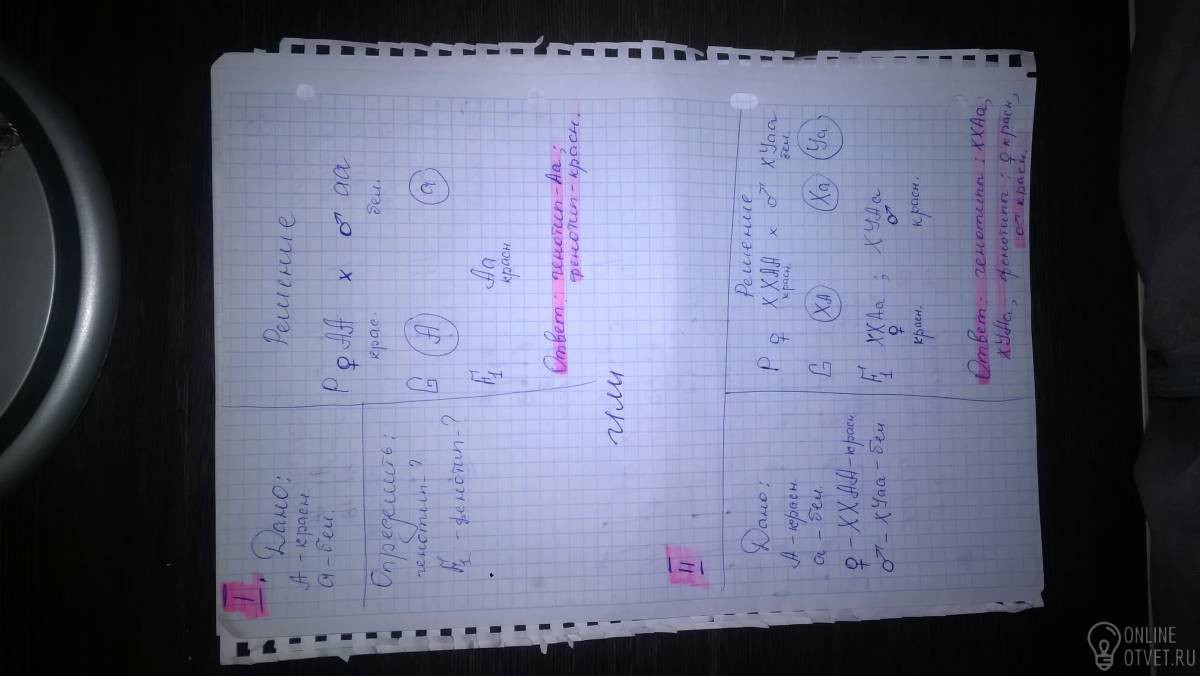 I.
Дано:
А - красн.
а - бел.
Определить:
генотип-?
F1 - фенотип-?
Решение
Р ♀ АА х ♂ аа
крас. бел.
G А а
F1 Аа
красн
Ответ: генотип - Аа;
фенотип - красн.
или
II
Дано:
А - красн.
а - бел.
♀ - ХХАА - красн
♂ - ХУаа - бел
Решение
Р ♀ ХХАА х ♂ ХУаа
красн. бел.
G ХА Ха Уа
F1 ХХАа ; ХУАа
♀ ♂
красн. красн.
Ответ: генотипы: ХХАа;
ХУАа, фенотипы: ♀ красн,
♂ красн.
ONLINE
OTVET.RU